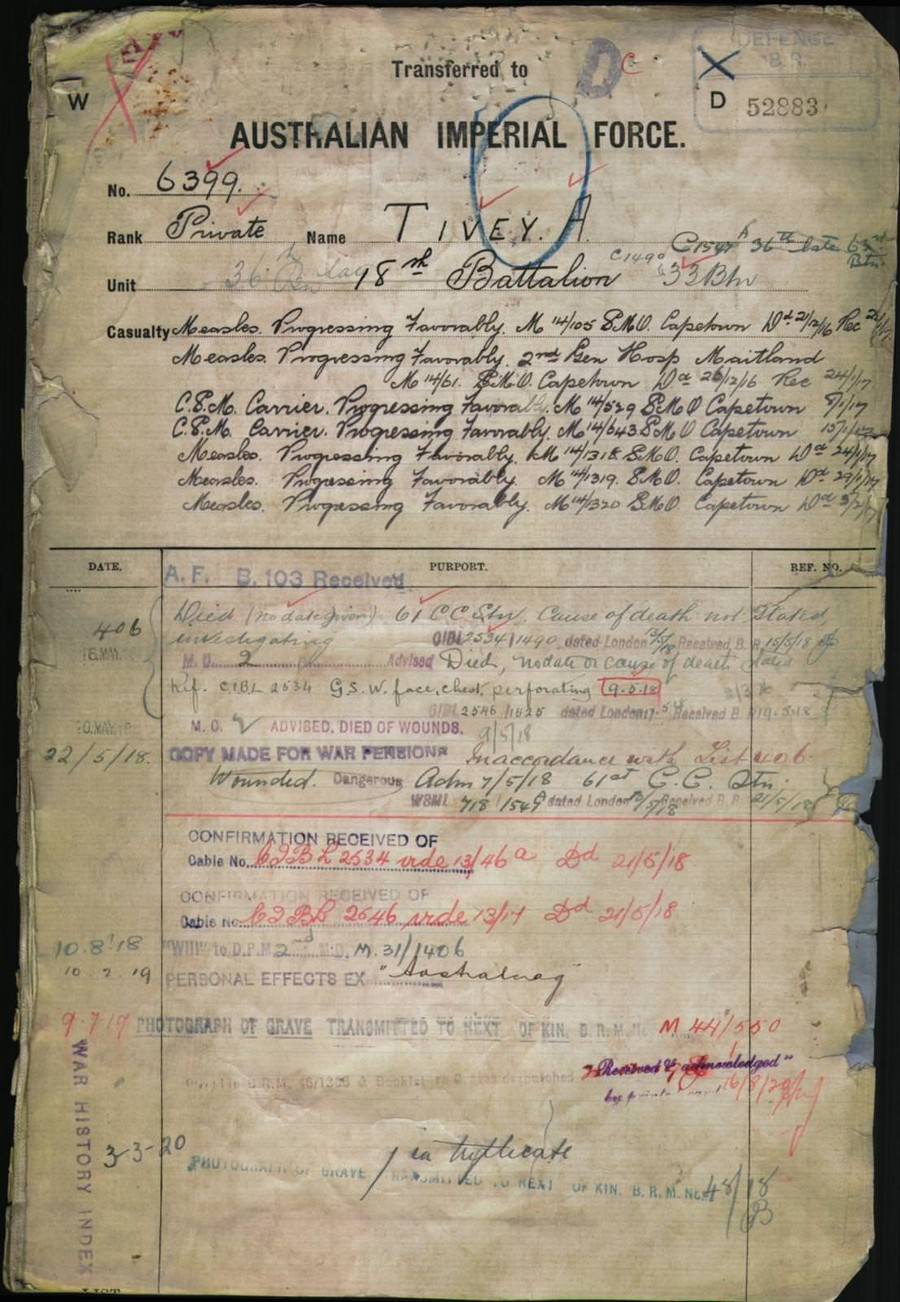 DEFENSE
B.R.
Transferred to
D C
W
D
52883
AUSTRALIAN IMPERIAL FORCE.
No. 6399.
Rank Private Name TIVEY. A.
C1547 36th late 63rd Btn
Unit 36th Bn 18th Battalion C1490 33 Btn
Casualty Measles. Progressing Favorably. M 14/105 S.M.O. Capetown Dd 21/12/16 Rec
Measles. Progressing Favorably. 2nd Gen Hosp Maitland
M 14/61. S.M.O. Capetown Dd 26/12/16 Rec 24/1/17
C.S.M. Carrier. Progressing Favorably. M 14/529 S.M.O Capetown 8/1/17
C.S.M. Carrier. Progressing Favorably. M 14/643 S.M.O Capetown 15/1/17
Measles. Progressing Favorably. M 14/1318 S.M.O. Capetown Dd 24/1/17
Measles. Progressing Favorably. M 14/1319. S.M.O. Capetown Dd 29/1/17
Measles. Progressing Favorably. M 14/1320 S.M.O. Capetown Dd 5/2/17
DATE. PURPORT. REF. NO.
A.F. B.103 Received
406 Died (no date given) 61 CC Stn. Cause of death not Stated
18 MAY investigating CIBL 2534/1490 dated London Received B.R. 15/5/18
M.O. 2 Advised Died, no date or cause of death stated
Ref. CIBL 2534 G.S.W. face, chest, perforating 9-5-18
CIBL 2546/1525 dated London 17-5-18 Received B.R. 19-5-18
20 MAY 18 M.O. ADVISED, DIED OF WOUNDS. 9/5/18
22/5/18. COPY MADE FOR WAR PENSIONS In accordance with List 406
Wounded. Dangerous Adm 7/5/18 61st C.C. Stn.
WSML 718 1549 dated London Received B.R. 21/5/18
CONFIRMATION RECEIVED OF
Cable No. CIBL 2534 vide 13/46a Dd 21/5/18
CONFIRMATION RECEIVED OF
Cable No. CIBL 2546 vide 13/17 Dd 21/5/18
10.8.18 "Will" to D.P.M. 2nd M.D. M.31/1406
10 2.19 PERSONAL EFFECTS EX
9.7.19 PHOTOGRAPH OF GRAVE TRANSMITTED TO NEXT OF KIN. B.R.M. No. M 44/550
"Received & acknowledged"
16/8/20
3-3-20 in triplicate
PHOTOGRAPH OF GRAVE TRANSMITTED TO NEXT OF KIN. B.R.M. No. 48/18
B
WAR HISTORY INDEX
LIST